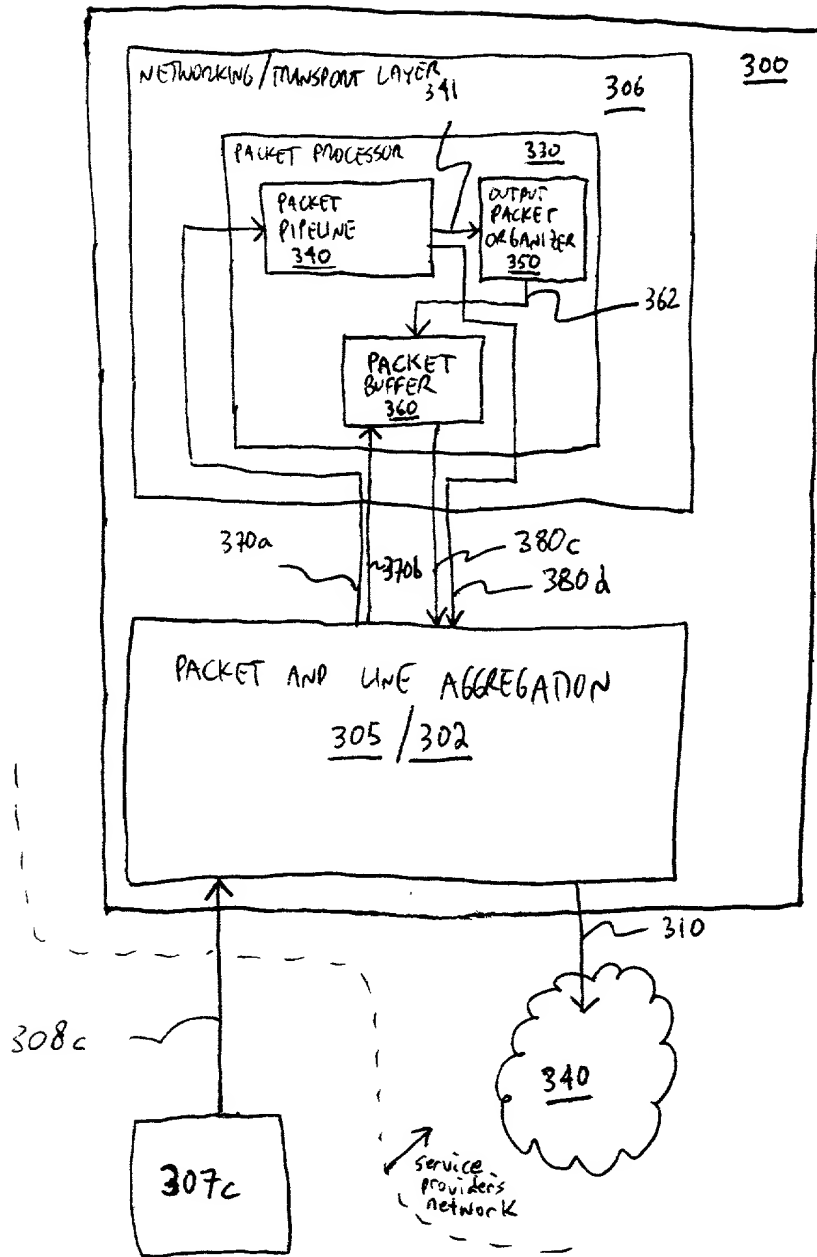 300
NETWORKING/TRANSPORT LAYER
341
306
PACKET PROCESSOR
330
PACKET
PIPELINE
340
OUTPUT
PACKET
ORGANIZER
350
362
PACKET
BUFFER
360
370a
370b
380c
380d
PACKET AND LINE AGGREGATION
305/302
310
308c
340
307c
service
providers
network